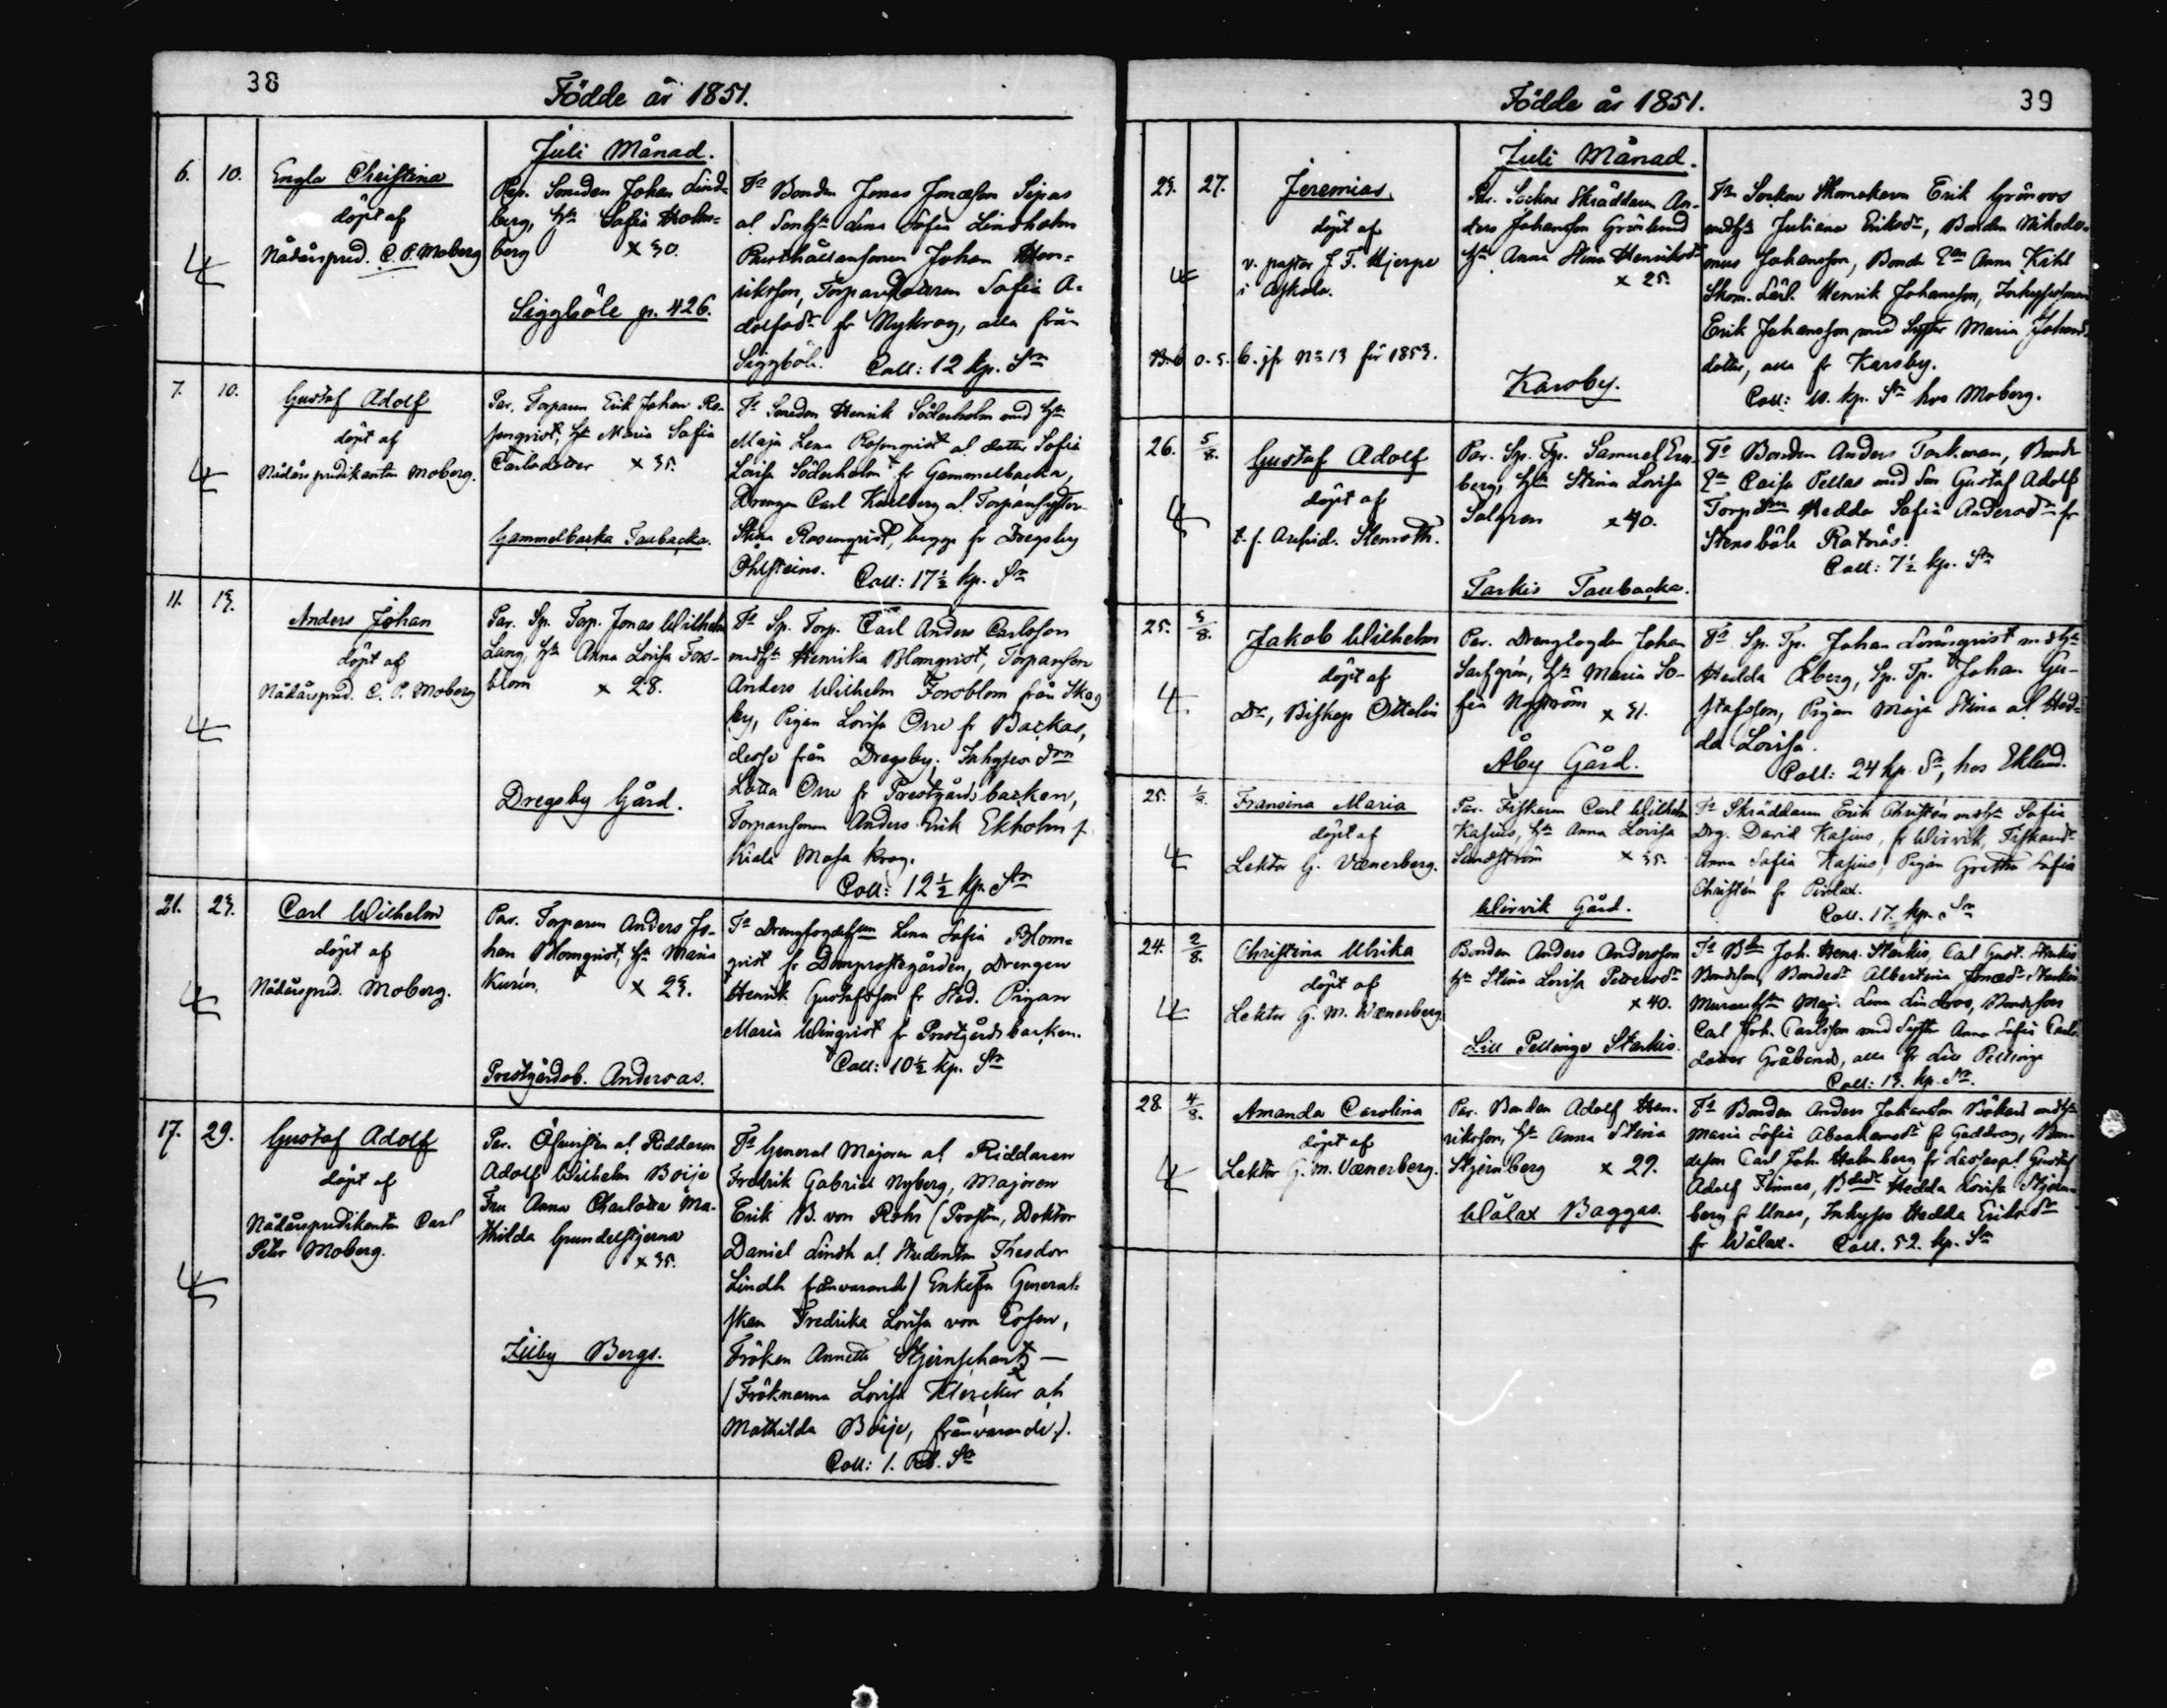 38
Födde år 1851.
Juli Månad.
6. 10. Engla Christina
döpt af
Nådårspred. C. P. Moberg
Par. Smeden Johan Lind-
berg, h:u Sofia Holm-
berg x 30.
Siggböle p. 426.
Fa. Bonden Jonas Jonasson Sipas
Lena Sofia Lindholm
Johan Hen-
riksson, Torparedottern Sofia A-
dolfsdr fr Nykrog, alla från
Siggböle. Coll: 12 kp. Sr
7. 10. Gustaf Adolf
döpt af
Nådårspredikanten Moberg.
Par. Torparen Erik Johan Ro-
senqvist, h:u Maria Sofia
Carlsdotter x 35.
Gammelbacka Taubacka.
Fa. Smeden Henrik Söderholm med h:u
Maja Lena Rosenqvist al dotter Sofia
Lovisa Söderholm fr Gammelbacka,
Drengen Carl Karlberg al
Stina Rosenqvist, begge fr Dregsby
Öhlsteins. Coll: 17½ kp. Sr
11. 13. Anders Johan
döpt af
Nådårspred. C. P. Moberg
Par. Sp. Torp. Jonas Wilhelm
Lang, h:u Anna Lovisa Fors-
blom x 28.
Dregsby Gård.
Fa. Sp. Torp. Carl Anders Carlsson
med h:u Henrika Blomqvist, Torparson
Anders Wilhelm Forsblom från
Pigan Lovisa Orre fr Backas,
desse från Dregsby. Inhyses
Lotta Orre fr Prestgårdsbacken,
Torparsonen Anders Erik Ekholm f.
Kiala Mosa krog.
Coll: 12½ kp. Sr
21. 23. Carl Wilhelm
döpt af
Nådårspred. Moberg.
Par. Torparen Anders Jo-
han Blomqvist, h:u Maria
Kurén, x 23.
Prestgårdsb. Anderas.
Lena Sofia Blom-
qvist fr Domprostegården, Drengen
Henrik Gustafsson fr Stad. Pigan
Maria Winqvist fr Prestgårdsbacken.
Coll: 10½ kp. Sr
17. 29. Gustaf Adolf
döpt af
Nådårspredikanten Carl
Petter Moberg.
Par. Öfversten al Riddaren
Adolf Wilhelm Boije
Fru Anna Charlotta Ma-
thilda Gyundelstjerna
x 35.
Illby Bergs.
Fa. General Majoren al Riddaren
Fredrik Gabriel Nyberg, Majoren
Erik B. von Rohr (Prosten, Doktor
Daniel Lindh al Studenten Theodor
Lindh frånvarande) Enkefru General-
skan Fredrika Lovisa von Essen,
Fröken Annette Stjernschantz —
(Fröknarna Lovisa Klercker ah
Mathilda Boije, frånvarande).
Coll: 1. Rb. Sr
Födde år 1851. 39
Juli Månad.
23. 27. Jeremias,
döpt af
v. pastor J. F. Hjerpe
i Askola.
6. jfr No 13 för 1853.
Par. Socken Skräddaren An-
ders Johansson Grönlund
h:u Anna Stina Henriksdr
x 25.
Karsby.
Fa. Socken Skomakaren Erik Grönroos
med h:u Juliana Eriksdr, Bonden Nikode-
mus Johansson, Bonde Anna Kihl
Skom. Lärl. Henrik Johansson,
Erik Johansson med Syster Maria Johans-
dotter, alla fr Karsby.
Coll: 10. kp. Sr hos Moberg.
26. 5/8. Gustaf Adolf
döpt af
t. f. Stenroth.
Par. Sp. Tp. Samuel
berg, h:u Stina Lovisa
Salgren x 40.
Tarkis Taubacka.
Fa. Bonden Anders Tarkman,
Caisa Pellas med Son Gustaf Adolf
Hedda Sofia Andersdr fr
Stensböle Ratnäs.
Coll: 7½ kp. Sr
25. 3/8. Jakob Wilhelm
döpt af
Dr, Biskop Ottelin
Par. Drengfogden Johan
h:u Maria So-
fia Nyström x 31.
Åby Gård.
Fa. Sp. Tp. Johan Lönnqvist med h:u
Hedda Åberg, Sp. Tp. Johan Gu-
stafsson, Pigan Maja Stina al Hed-
da Lovisa.
Coll: 24 kp. Sr, hos Eklund.
25. Fransina Maria
döpt af
Lektor G. Wænerberg.
Par. Fiskaren Carl Wilhelm
Kasius, h:u Anna Lovisa
Sandström x 35.
Wirvik Gård.
Fa. Skräddaren Erik Christén med h:u Sofia
Drg. David Kasius, fr Wirvik, Fiskaredr
Anna Sofia Kasius, Pigan Gretha Sofia
Christén fr Pirlax.
Coll. 17. kp. Sr
24. 2/8. Christina Ulrika
döpt af
Lektor G. M. Wænerberg
Bonden Anders Andersson
h:u Stina Lovisa Pettersdr
x 40.
Lill Pellinge Sterkis.
Fa. Joh. Henr. Sterkis, Carl Gust. Sterkis
Bondeson, Bondedr Albertina Jonasdr Sterkis
Maj. Lena Lindroos, Bondeson
Carl Joh. Carlsson med Syster Anna Sofia Carls-
dotter Gråbend, alla fr Lill Pellinge
Coll: 13. kp. Sr.
28. 4/8. Amanda Carolina
döpt af
Lektor G. M. Wænerberg.
Par. Bonden Adolf Hen-
riksson, h:u Anna Stina
Stjernberg x 29.
Wålax Baggas.
Fa. Bonden Anders Johansson Bökars med h:u
Maria Sofia Abrahamsdr fr Gaddrag, Bon-
deson Carl Joh. Holmberg fr Gustaf
Adolf Finnas, Hedda Lovisa Stjern-
berg fr Unas, Inhyses Hedda Eriksdr
fr Wålax. Coll. 52. kp. Sr